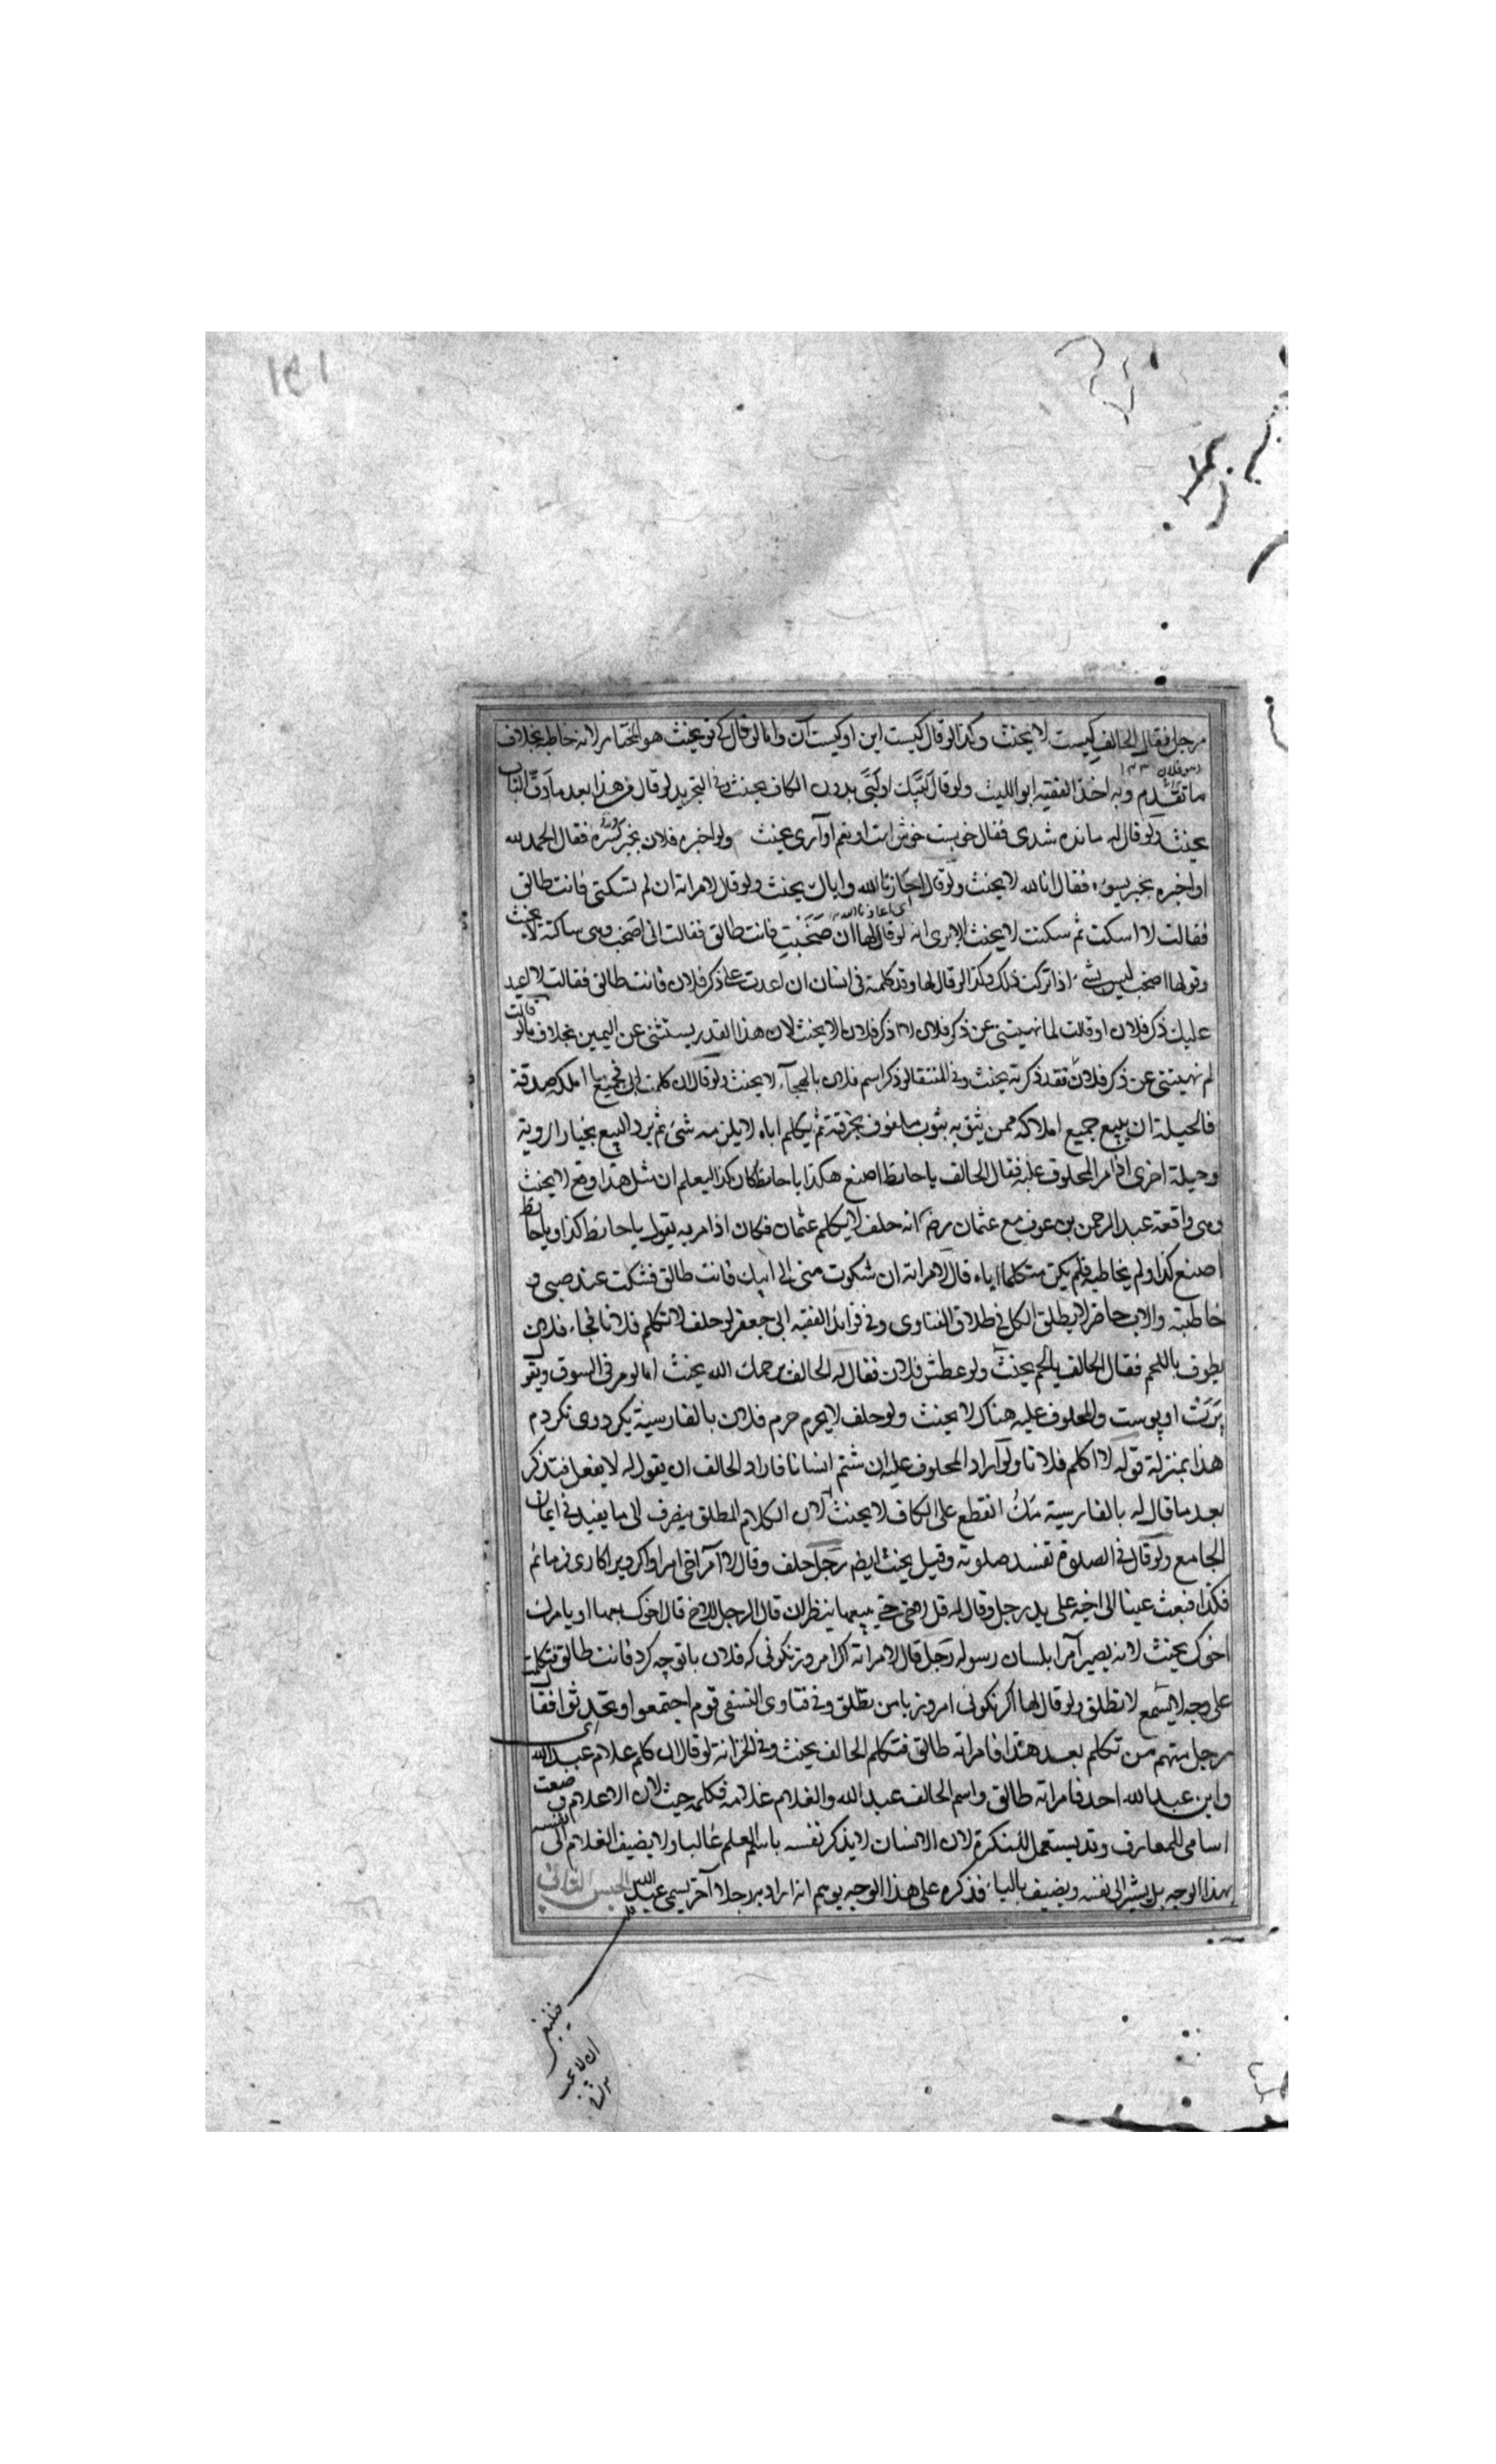 ١٤١
رجل فقال الحالف كيست لا يحنث وكذا لو قال كيست اين او كيست آن واما لو قال كه تو يحنث هو المختار لانه خاطبه بخلاف
ما تقدم وبه اخذ الفقيه ابو الليث ولو قال لبيك او لبى بدون الكاف يحنث وفى التجريد لو قال من هذا بعد ما دق الباب
يحنث ولو قال له مانده شدى فقال خوبست خوش است او نعم او آرى يحنث ولو اخبره فلان بخبر يسره فقال الحمد لله
او اخبره بخبر يسوء فقال انا لله لا يحنث ولو قال اجازنا الله واياك يحنث ولو قال لامراته ان لم تسكتى فانت طالق
اى اعاذنا الله
فقالت لا اسكت ثم سكتت لا يحنث الا يرى انه لو قال لها ان صخبت فانت طالق فقالت انى اصخب وهى ساكتة لا يحنث
وقولها اصخب ليس بشئ اذا تركت ذلك وكذا لو قال لها وقد كلمته فى انسان ان اعدت على ذكر فلان فانت طالق فقالت لا اعيد
عليك ذكر فلان او قالت لما نهيتنى عن ذكر فلان لا اذكر فلان لا يحنث لان هذا القدر يستثنى عن اليمين بخلاف ما لو قالت
لم نهيتنى عن ذكر فلان فقد ذكرته يحنث وفى المنتقى لو ذكر اسم فلان بالهجاء لا يحنث ولو قال ان كلمت ابى فجميع ما املكه صدقة
فالحيلة ان يبيع جميع املاكه ممن يثق به بثوب ملفوف بخرقة ثم يكلم اباه لا يلزمه شئ ثم يرد البيع بخيار الروية
وحيلة اخرى اذا مر المحلوف عليه فقال الحالف يا حائط اصنع هكذا يا حائط كان كذا ليعلم ان مثل هذا وقع لا يحنث
وهى واقعة عبد الرحمن بن عوف مع عثمان رضه انه حلف لا يكلم عثمان فكان اذا مر به يقول يا حائط كذا ويا حائط
اصنع كذا ولم يخاطبه فلم يكن متكلما اياه قال لامراته ان شكوت منى الى ابيك فانت طالق فشكت عند صبى و
خاطبته والاب حاضر لا يطلق الكل فى طلاق الفتاوى وفى فوائد الفقيه ابى جعفر لو حلف لا تكلم فلانا فجاء فلان
يطوف باللحم فقال الحالف يا لحم يحنث ولو عطش فلان فقال له الحالف يرحمك الله يحنث اما لو مر فى السوق ويقول
او پوست والمحلوف عليه هناك لا يحنث ولو حلف لا يحرم حرم فلان بالفارسية بگرد وى نگردم
هذا بمنزلة قوله لا اكلم فلانا ولو اراد المحلوف عليه ان شتم انسانا فاراد الحالف ان يقول له لا يفعل فتذكر
بعد ما قال له بالفارسية مك انقطع على الكاف لا يحنث لان الكلام المطلق ينصرف الى ما يفيد فى ايمان
الجامع ولو قال فى الصلوة تفسد صلوته وقيل يحنث ايضه رجل حلف وقال لا آمر اخى امرا واكر ويرا كارى فرمايم
فكذا فبعث عينا الى اخيه على يد رجل وقال له قل لاخى حتى يبيعها ينظر ان قال الرجل للاخ قال اخوك بعها او يامرك
اخوك يحنث لانه يصير آمرا بلسان رسوله رجل قال لامراته اكر امروز نكونى كه فلان با تو چه كرد فانت طالق فتكلمت
على وجه لا يسمع لا تطلق ولو قال لها اكر نكونى امروز با من تطلق وفى فتاوى النسفى قوم اجتمعوا ويتحدثوا فقال
رجل منهم من تكلم بعد هذا فامراته طالق فتكلم الحالف يحنث وفى الخزانة لو قال ان كلم غلام عبد الله
وابن عبد الله احد فامراته طالق واسم الحالف عبد الله والغلام غلامه فكلمه حنث لان الاعلام وضعت
اسامى للمعارف وقد يستعمل للنكرة لان الانسان لا يذكر نفسه باسم العلم غالبا ولا يضيف الغلام الى نفسه
بهذا الوجه بل يشير الى نفسه ويضيف بالياء فذكره على هذا الوجه يوهم انه اراد به رجلا آخر يسمى عبد الله الجنس الثانى
فينبغى
ان لا يحنث